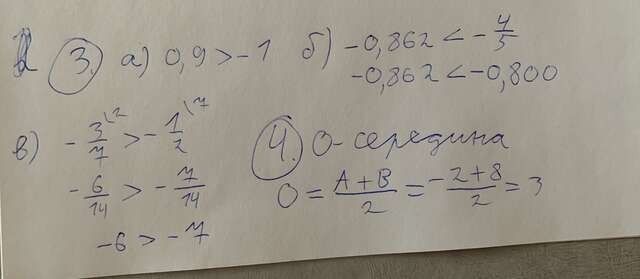 3. а) 0,9 > -1 б) -0,862 < -4/5
-0,862 < -0,800
в) -3/7 \2 > -1/2 \7
-6/14 > -7/14
-6 > -7
4. О - середина
О = A+B/2 = -2+8/2 = 3